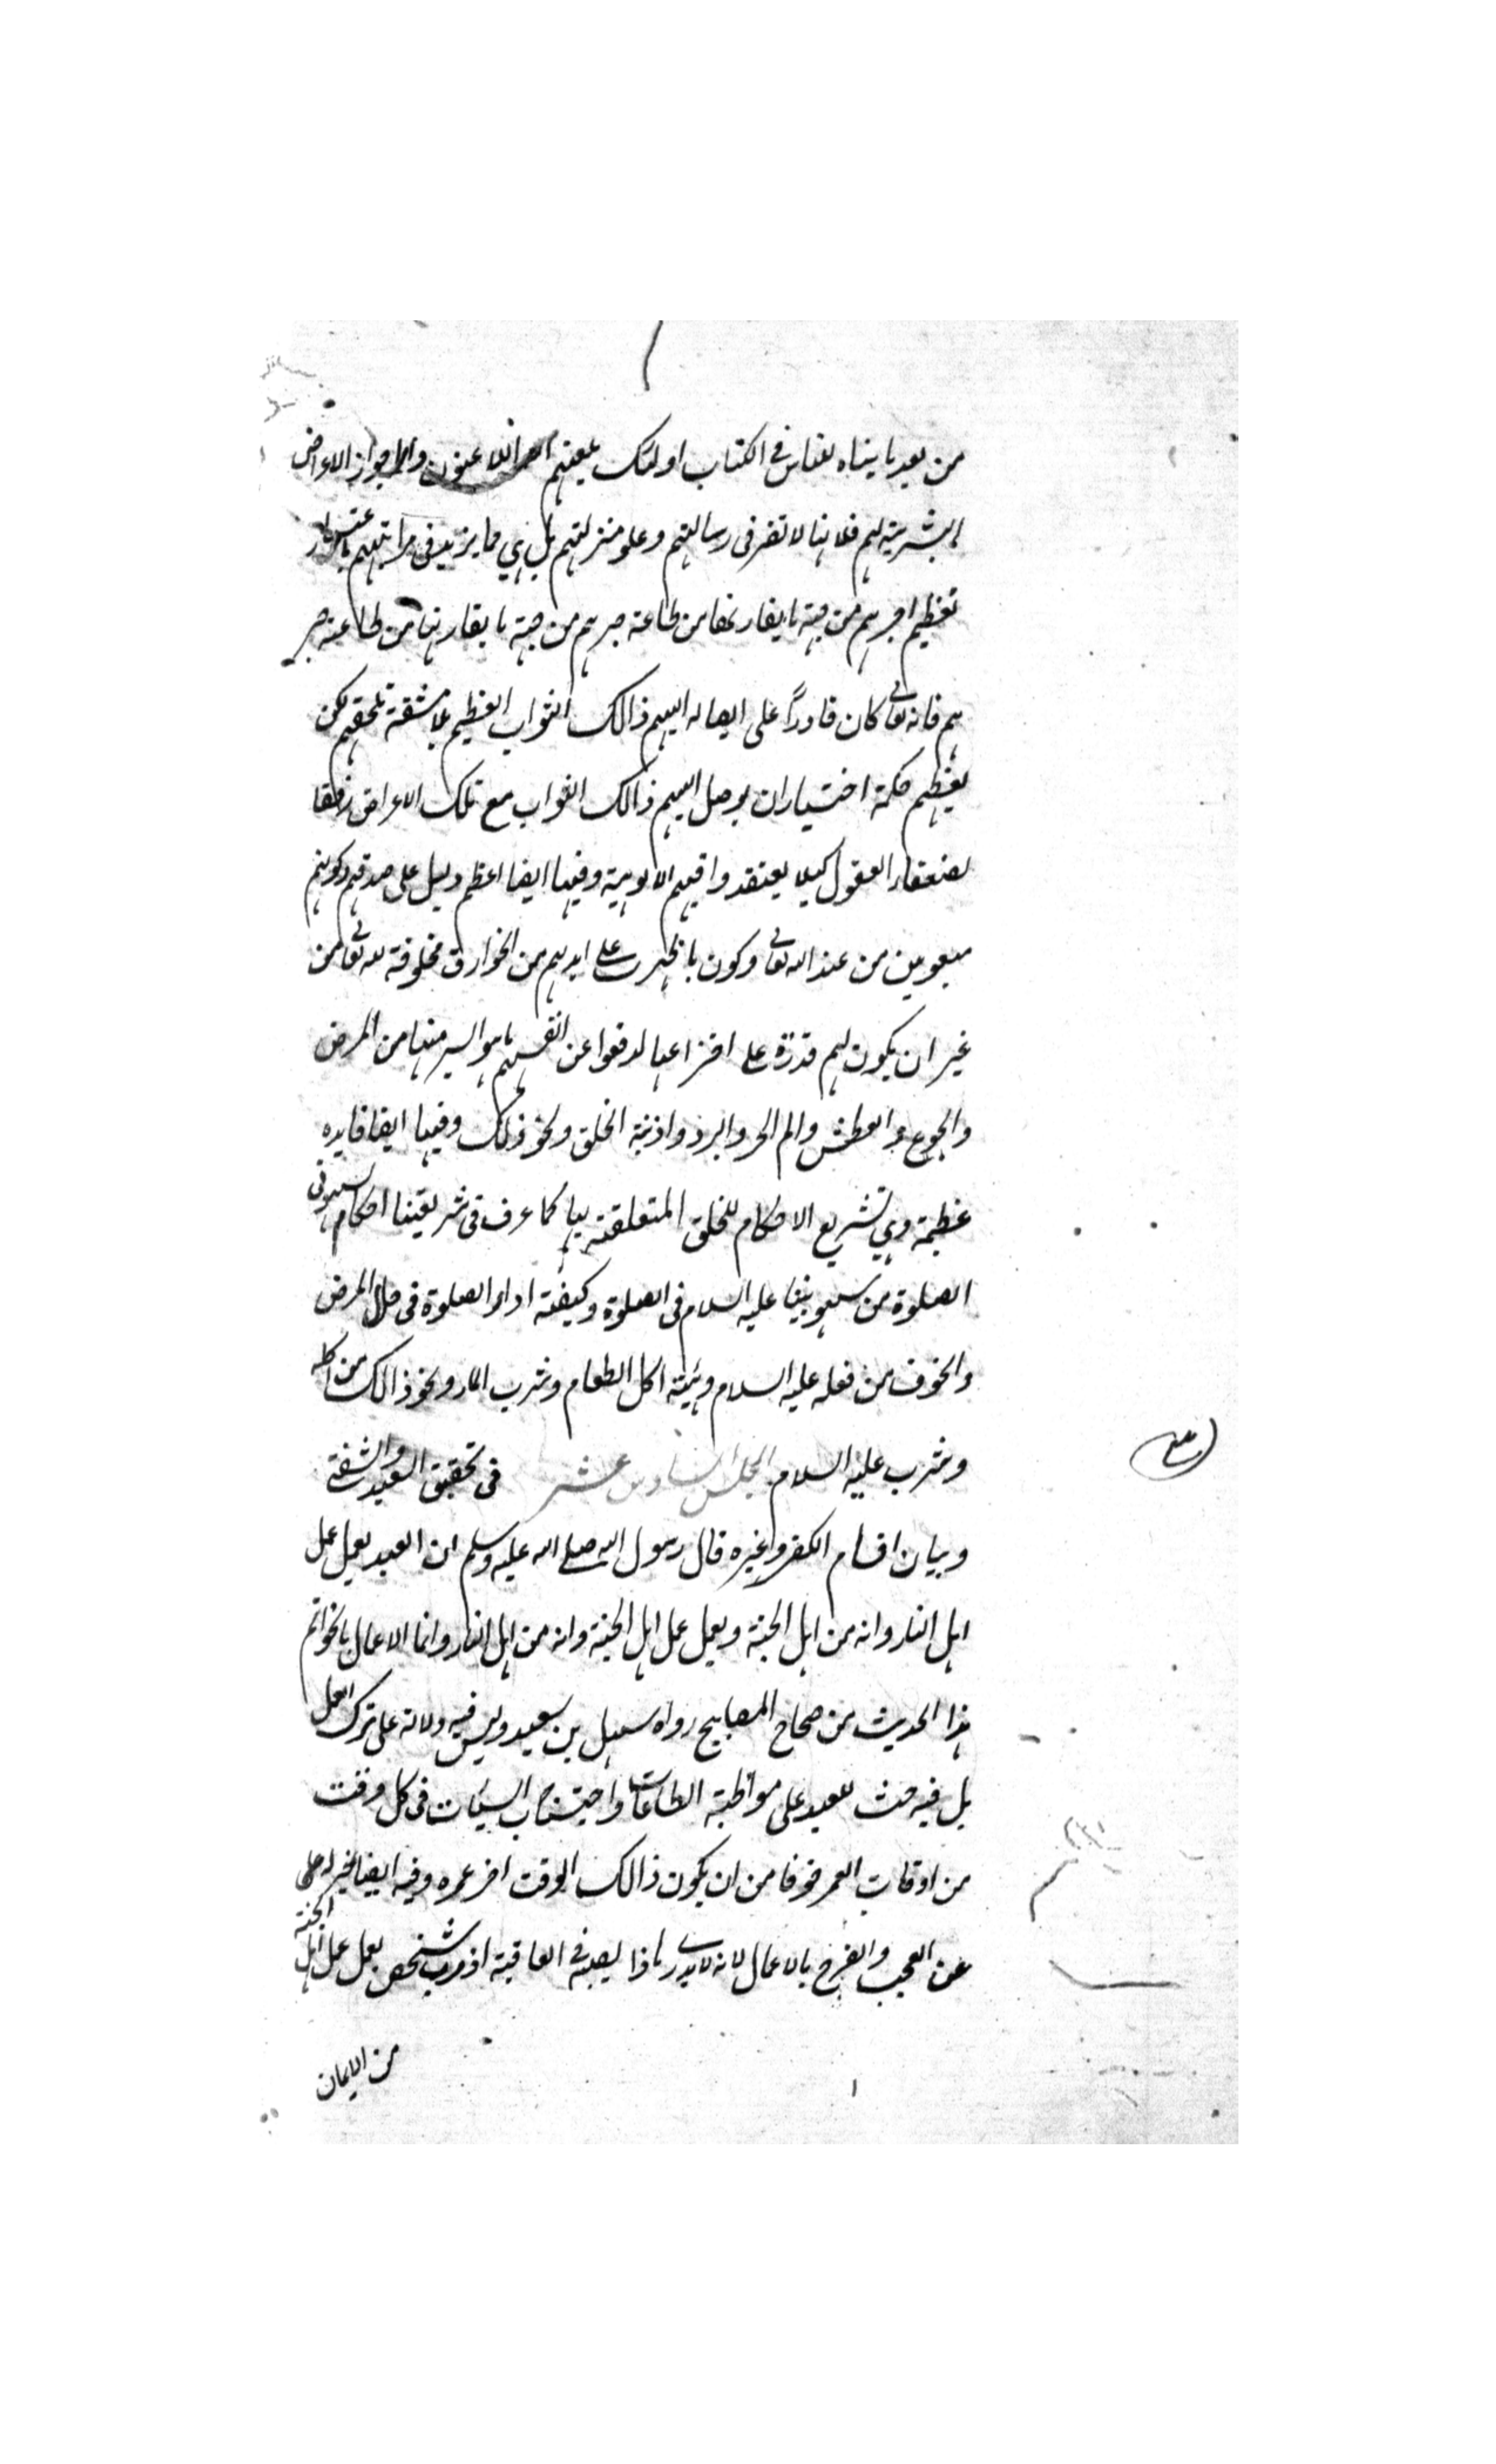 من بعد ما بيناه للناس في الكتاب اولئك يلعنهم الله اللاعنون واما جواز الاعراض
البشرية لهم فلانها لا تضر في رسالتهم وعلو منزلتهم بل هي مما يزيد في مراتبهم باعتبار
تعظيم اجرهم من جهة ما يقارنها من طاعة صبرهم من جهة ما يقارنها من طاعة صبر
هم فانه تعالى كان قادراً على ايصاله اليهم ذالك الثواب العظيم بلا مشقة تلحقهم لكن
لعظيم حكمة اختيار ان يوصل اليهم ذالك الثواب مع تلك الاعراض رفقا
لضعفاء العقول كيلا يعتقدوا فيهم الالوهية وفيها ايضا اعظم دليل على صدقهم وكونهم
مبعوثين من عند الله تعالى وكون ما ظهرت على ايديهم من الخوارق مخلوقة لله تعالى من
غير ان يكون لهم قدرة على اختراعها لدفعوا عن انفسهم ما هو ايسر منها من المرض
والجوع والعطش والم الحر والبرد واذية الخلق ونحو ذلك وفيها ايضا فايده
عظيمة وهي تشريع الاحكام للخلق المتعلقة بها كما عرف في شريعتنا احكام سهو في
الصلوة من سهو نبينا عليه السلام في الصلوة وكيفية اداء الصلوة في حال المرض
والخوف من فعله عليه السلام وهيئة اكل الطعام وشرب الماء ونحو ذالك من اكله
وشرب عليه السلام المجلس السادس عشر في تحقيق السعيد والشقي
وبيان اقسام الكفر وغيره قال رسول الله صلى الله عليه وسلم ان العبد يعمل عمل
اهل النار وانه من اهل الجنة ويعمل عمل اهل الجنة وانه من اهل النار وانما الاعمال بالخواتم
هذا الحديث من صحاح المصابيح رواه سهل بن سعيد وليس فيه دلالة على ترك العمل
بل فيه حث للعبد على مواظبة الطاعات واجتناب السيئات في كل وقت
من اوقات العمر خوفا من ان يكون ذالك الوقت اخر عمره وفيه ايضا
عن العجب والفرح بالاعمال لانه لا يدري ماذا يصيبه في العاقبة اذ رب شخص يعمل عمل اهل الجنة
من الايمان